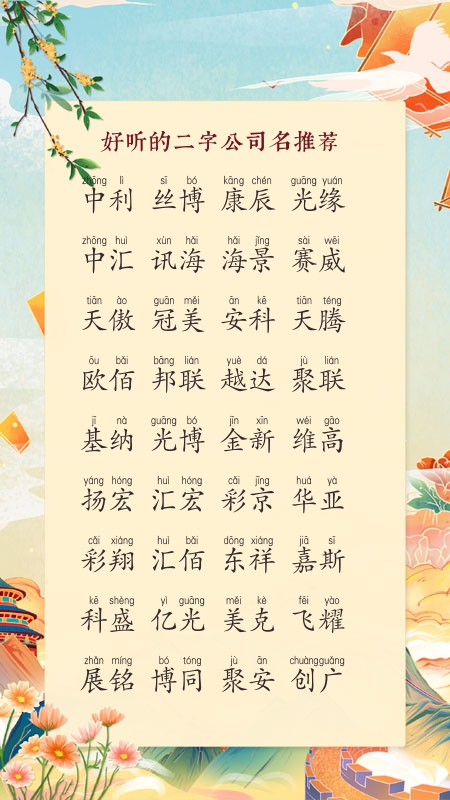 好听的二字公司名推荐
zhōng lì sī bó kāng chén guāng yuán
中利 丝博 康辰 光缘
zhōng huì xùn hǎi hǎi jǐng sài wēi
中汇 讯海 海景 赛威
tiān ào guān měi ān kē tiān téng
天傲 冠美 安科 天腾
ōu bǎi bāng lián yuè dá jù lián
欧佰 邦联 越达 聚联
jī nà guāng bó jīn xīn wéi gāo
基纳 光博 金新 维高
yáng hóng huì hóng cǎi jīng huá yà
扬宏 汇宏 彩京 华亚
cǎi xiáng huì bǎi dōng xiáng jiā sī
彩翔 汇佰 东祥 嘉斯
kē shèng yì guāng měi kè fēi yào
科盛 亿光 美克 飞耀
zhǎn míng bó tóng jù ān chuàngguǎng
展铭 博同 聚安 创广